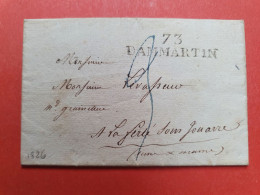 73
DAMMARTIN
Monsieur
Monsieur Levasseur
Md grainetier
A La ferté Sous Jouarre
(Seine & marne)
1826